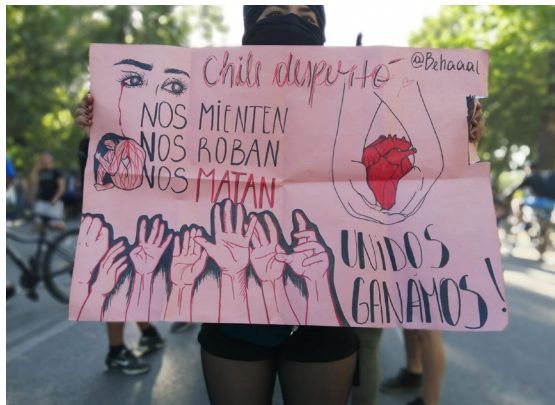 Chile despertó
@Behaaal
NOS MIENTEN
NOS ROBAN
NOS MATAN
UNIDOS
GANAMOS!